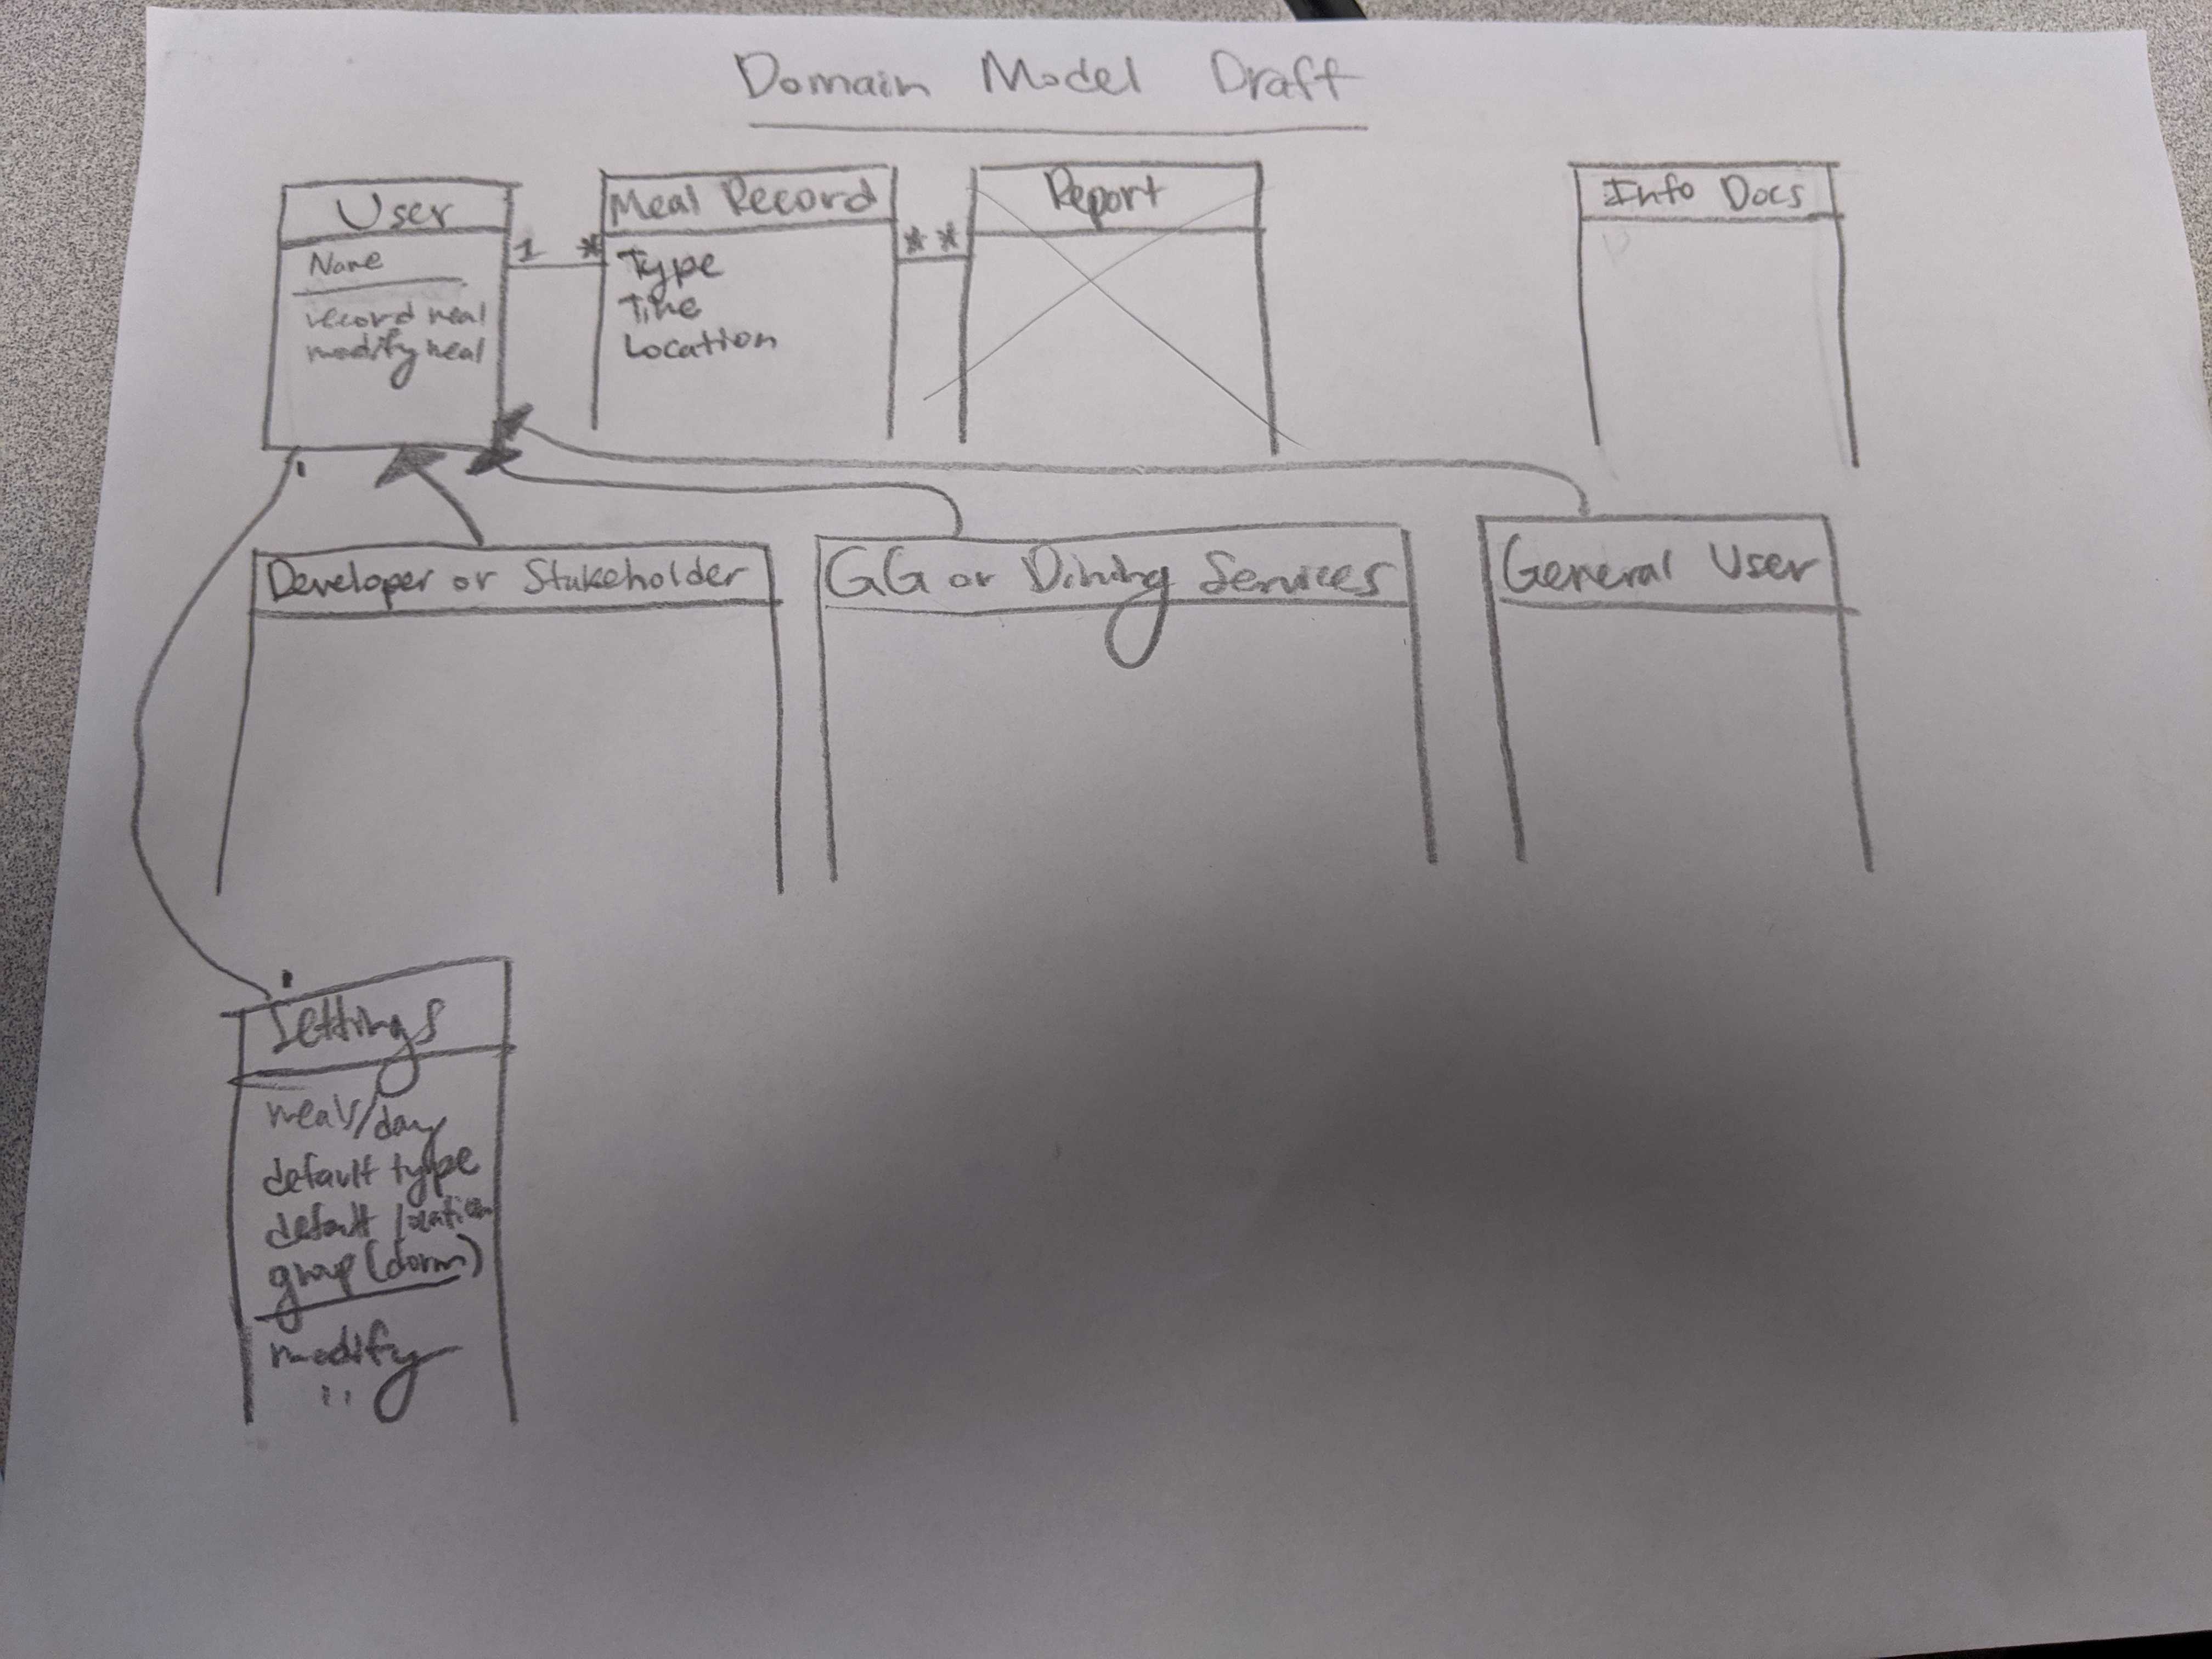 Domain Model Draft
User
Name
record meal
modify meal
1 *
Meal Record
Type
Time
Location
* *
Report
Info Docs
Developer or Stakeholder
GG or Dining Services
General User
Settings
meals/day
default type
default location
group (dorm)
modify